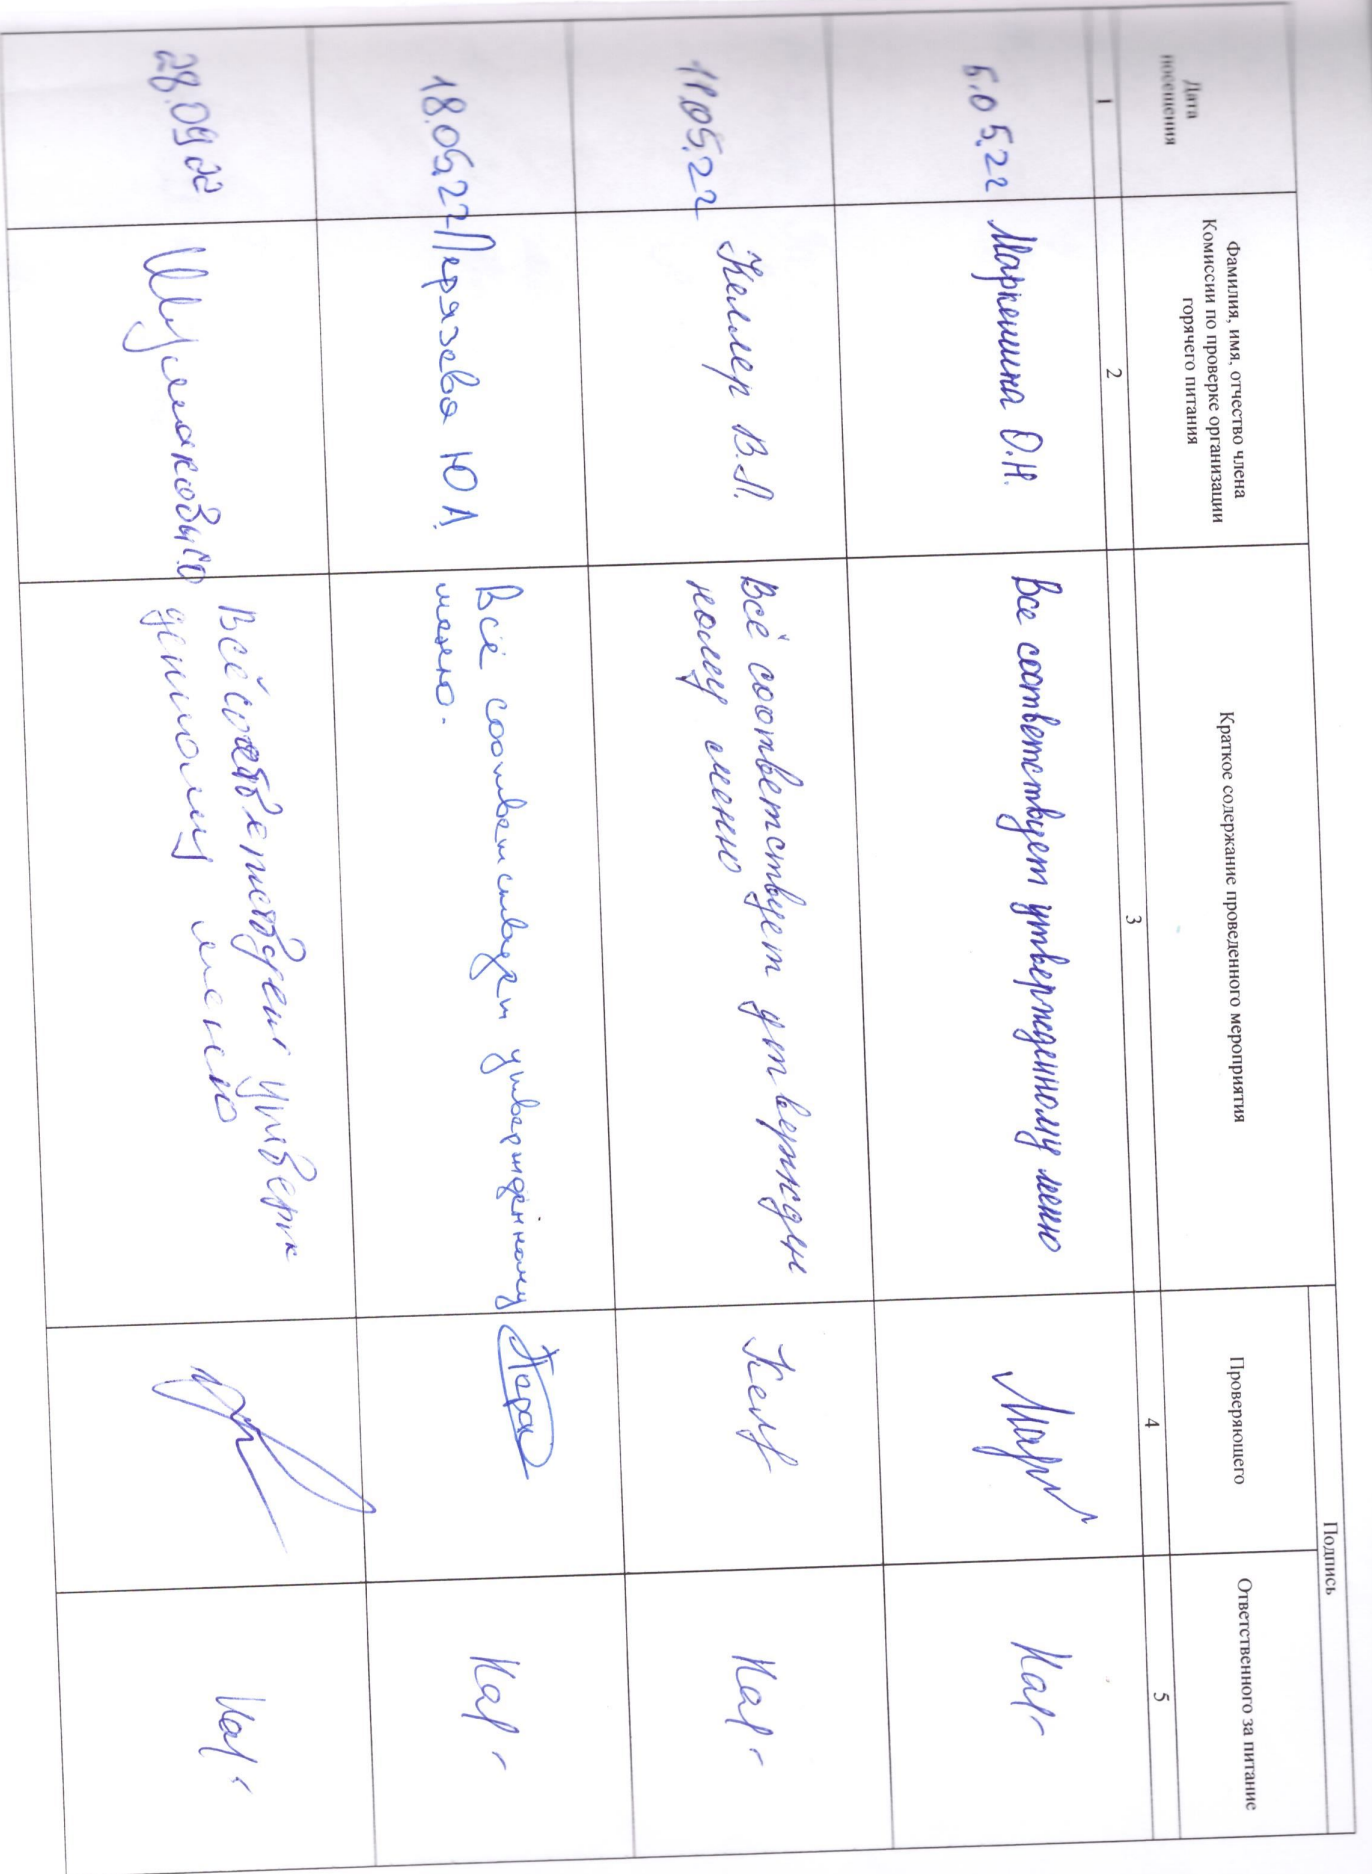 Подпись
Дата
посещения
Фамилия, имя, отчество члена
Комиссии по проверке организации
горячего питания
Краткое содержание проведенного мероприятия
Проверяющего
Ответственного за питание
1
2
3
4
5
5.05.22
Маркешина О.Н.
Все соответствует утвержденному меню
Марк
Кар
11.05.22
Келлер В.Л.
Всё соответствует утвержден
ному меню
Келл
Кар
18.05.22
Перязева Ю А.
Всё соответствует утверждённому
меню.
Кар
28.09.22
Всё соответствует утверж
денному меню
Кар